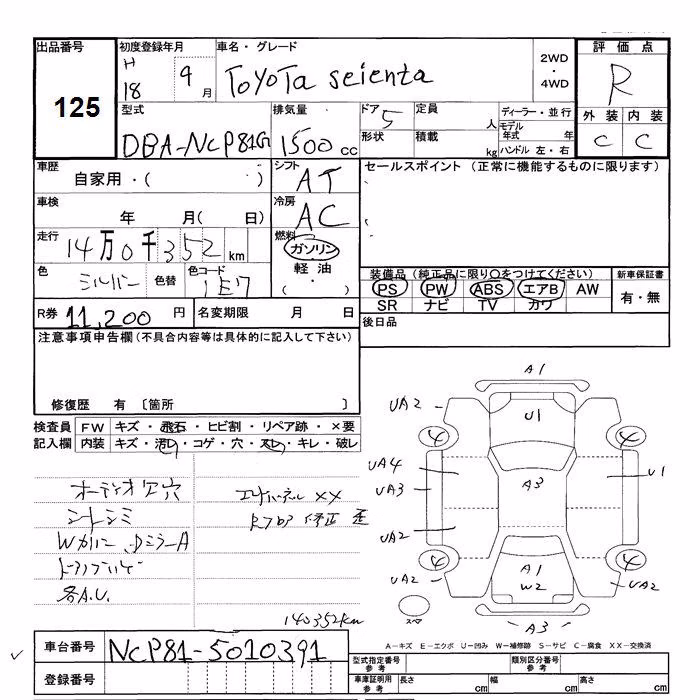 出品番号
125
初度登録年月
H
18 9月
車名・グレード
ToYoTa seienta
2WD
・
4WD
評価点
R
外装 内装
C C
型式
DBA-NCP81G
排気量
1500 cc
ドア 5
形状
定員 人
積載 kg
ディーラー・並行
モデル年式 年
ハンドル 左・右
車歴
自家用・( )
シフト
AT
セールスポイント (正常に機能するものに限ります)
車検
年 月( 日)
冷房
AC
走行
14万0千352km
燃料
ガソリン
軽油
( ・ )
色
シルバー
色替
色コード
1E7
装備品 (純正品に限り○をつけてください)
PS PW ABS エアB AW
SR ナビ TV カワ
新車保証書
有・無
R券 11,200 円
名変期限 月 日
後日品
注意事項申告欄(不具合内容等は具体的に記入して下さい)
修復歴 有 〔箇所 〕
検査員 FW キズ・飛石・ヒビ割・リペア跡・×要
記入欄 内装 キズ・汚レ・コゲ・穴・スレ・キレ・破レ
オーディオ穴
シートシミ
Wカバー、ドミラーA
各A.U.
エンドパネル XX
修正 歪
140352km
A1
U1
UA2
4
4
UA4
UA3
A3
U1
UA2
4
4
A1
W2
UA2
UA2
スマ
A3
A-キズ E-エクボ U-凹み W-補修跡 S-サビ C-腐食 XX-交換済
車台番号 NCP81-5010391
登録番号
型式指定番号
参考
類別区分番号
参考
車庫証明用
参考
長さ cm 幅 cm 高さ cm